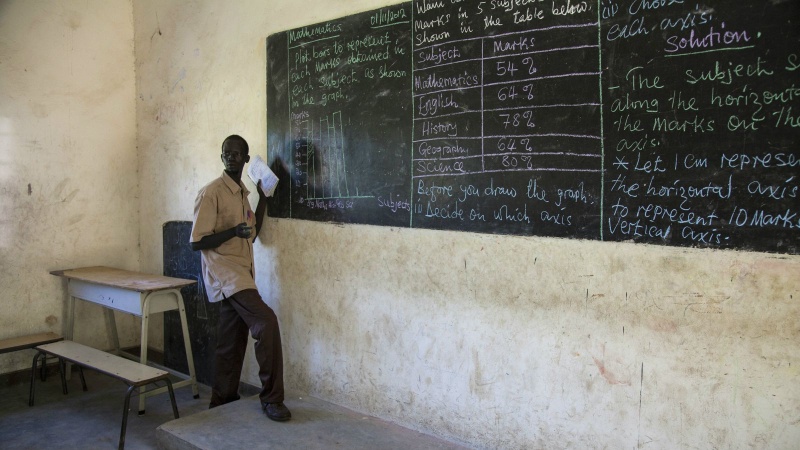 Mathematics
Plot bars to represent
each Marks obtained in
each Subject as shown
in the graph.
Marks
Subjects
Marks in 5 subjects
shown in the table below.
Subject Marks
Mathematics 54 %
English 64 %
History 78 %
Geography 64 %
Science 80 %
Before you draw the graph:
i) Decide on which axis
each axis.
Solution.
- The Subject
along the horizont
the Marks on the
axis.
* Let 1cm represen
the horizontal axis
to represent 10 Marks
Vertical axis.